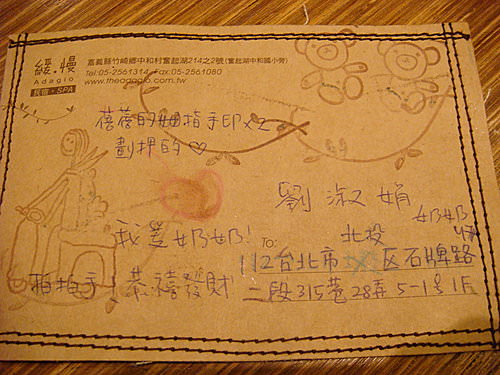 緩．慢
Adagio
民宿・SPA
嘉義縣竹崎鄉中和村奮起湖214之2號(奮起湖中和國小旁)
Tel:05-2561314 Fax:05-2561080
www.theadagio.com.tw
蓓蓓的姆指手印x2
劃押的♡
劉淑娟
奶奶
收
我愛奶奶!
To:
北投
112台北市 区石牌路
二段315巷28弄5-1号1F
拍拍手!恭禧發財